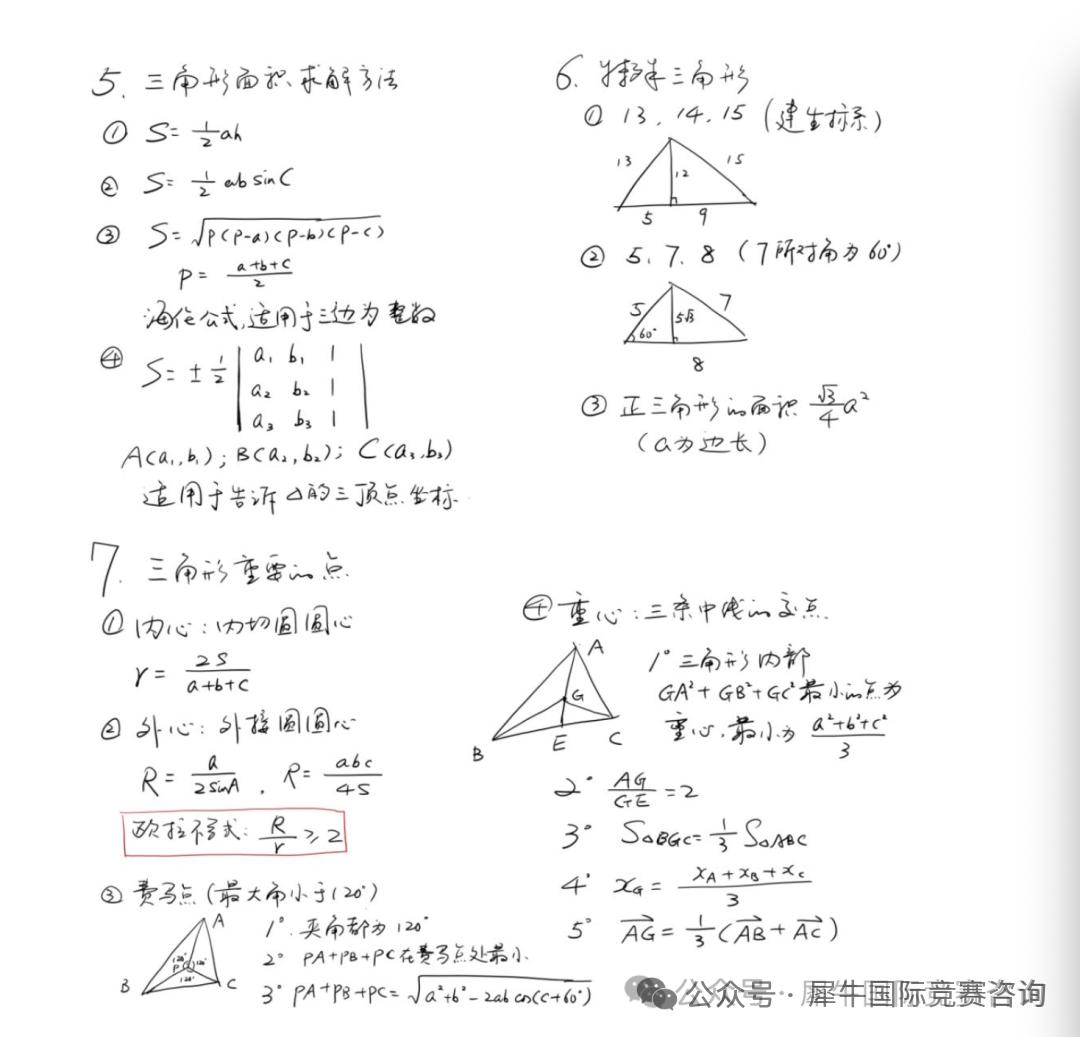 5. 三角形面积求解方法
① S= 1/2 ah
② S= 1/2 ab sinC
③ S= √(P(P-a)(P-b)(P-c))
P= (a+b+c)/2
海伦公式,适用于三边为整数
④ S= ± 1/2 | a₁ b₁ 1 |
| a₂ b₂ 1 |
| a₃ b₃ 1 |
A(a₁,b₁); B(a₂,b₂); C(a₃,b₃)
适用于告诉△的三顶点坐标.
6. 特殊三角形
① 13, 14, 15 (建坐标系)
13 15
12
5 9
② 5、7、8 (7所对角为60°)
5 7
60° 5√3
8
③ 正三角形的面积 √3/4 a²
(a为边长)
7. 三角形重要的点
① 内心: 内切圆圆心
r= 2S/(a+b+c)
② 外心: 外接圆圆心
R= a/(2sinA) , R= abc/4S
欧拉不等式: R/r ≥ 2
③ 费马点 (最大角小于120°)
A
120° P 120°
120°
B C
1°. 夹角都为120°
2° PA+PB+PC在费马点处最小
3° PA+PB+PC= √(a²+b²-2ab cos(C+60°))
④ 重心: 三条中线的交点
A
G
B E C
1° 三角形内部
GA²+GB²+GC²最小的点为
重心,最小为 (a²+b²+c²)/3
2° AG/GE =2
3° S△BGC= 1/3 S△ABC
4° x_G = (x_A+x_B+x_C)/3
5° AG→ = 1/3 (AB→+AC→)
公众号·犀牛国际竞赛咨询